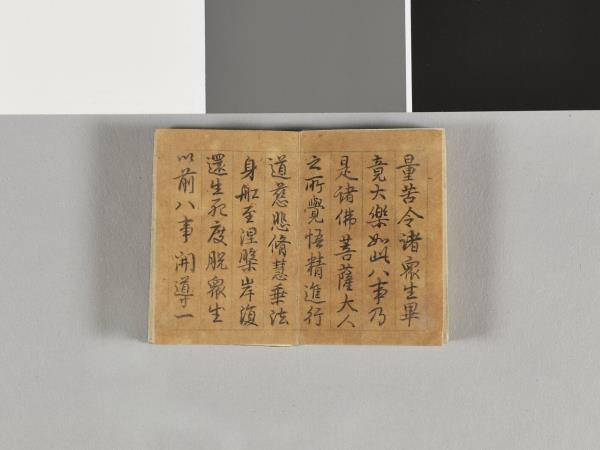 量苦令諸眾生畢
竟大樂如此八事乃
是諸佛菩薩大人
之所覺悟精進行
道慈悲脩慧乗法
身舡至涅槃岸復
還生死度脫眾生
以前八事開導一